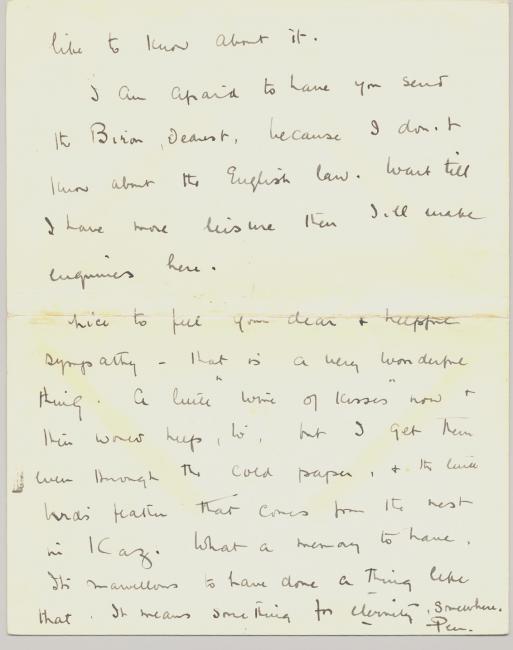 like to know about it.
I am afraid to have you send
the Biron, Dearest, because I don't
know about the English law. Wait till
I have more leisure then I'll make
enquiries here.
Nice to feel your dear & helpful
sympathy – that is a very wonderful
thing. A little "wine of kisses" now &
then would help, to, but I get them
even through the cold paper, & the little
birds feather that comes from the nest
in Kaz. What a memory to have.
It's marvellous to have done a thing like
that. It means something for eternity, somewhere.
Pen.